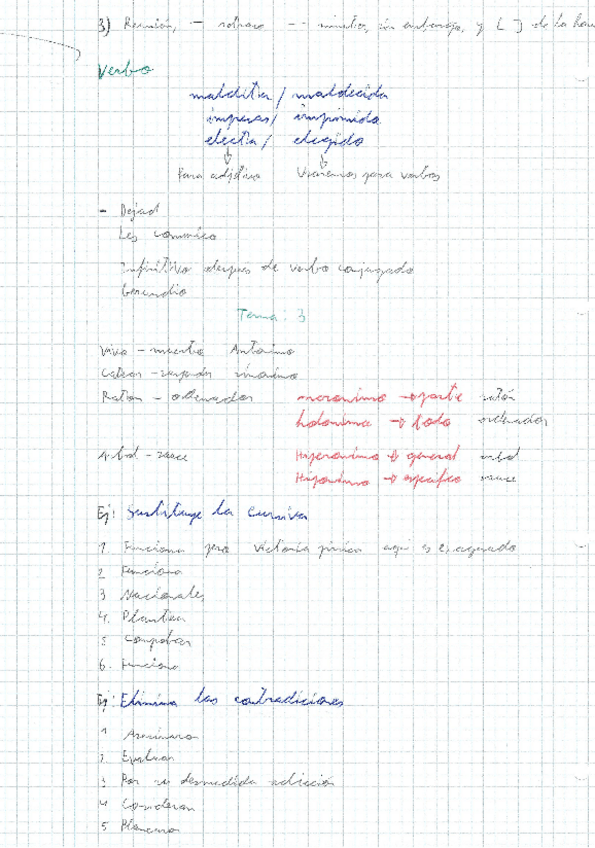 3) Reunión, – retraso – – minutos, sin embargo, y [ ] de la
Verbo
maldita / maldecida
impreso / imprimido
electa / elegido
Para adjetivo Usaremos para verbos
- Dejad
Les comunico
Infinitivo despues de verbo conjugado
Gerundio
Tema: 3
Vivo – muerto Antonimo
sinonimo
Raton – ordenador meronimo → parte ratón
holonimo → todo ordenador
Arbol – sauce Hiperonimo → general arbol
Hiponimo → especifico sauce
Ej: Sustituye la cursiva
1. Funciona pero victoria pirrica aqui es
2 Funciona
3 Nacionales
4. Plantean
5 Comprobar
6. Funciona
Ej: Elimina las contradiciones
1 Asesinaron
2
3 Por su desmedida adicción
4 Consideran
5